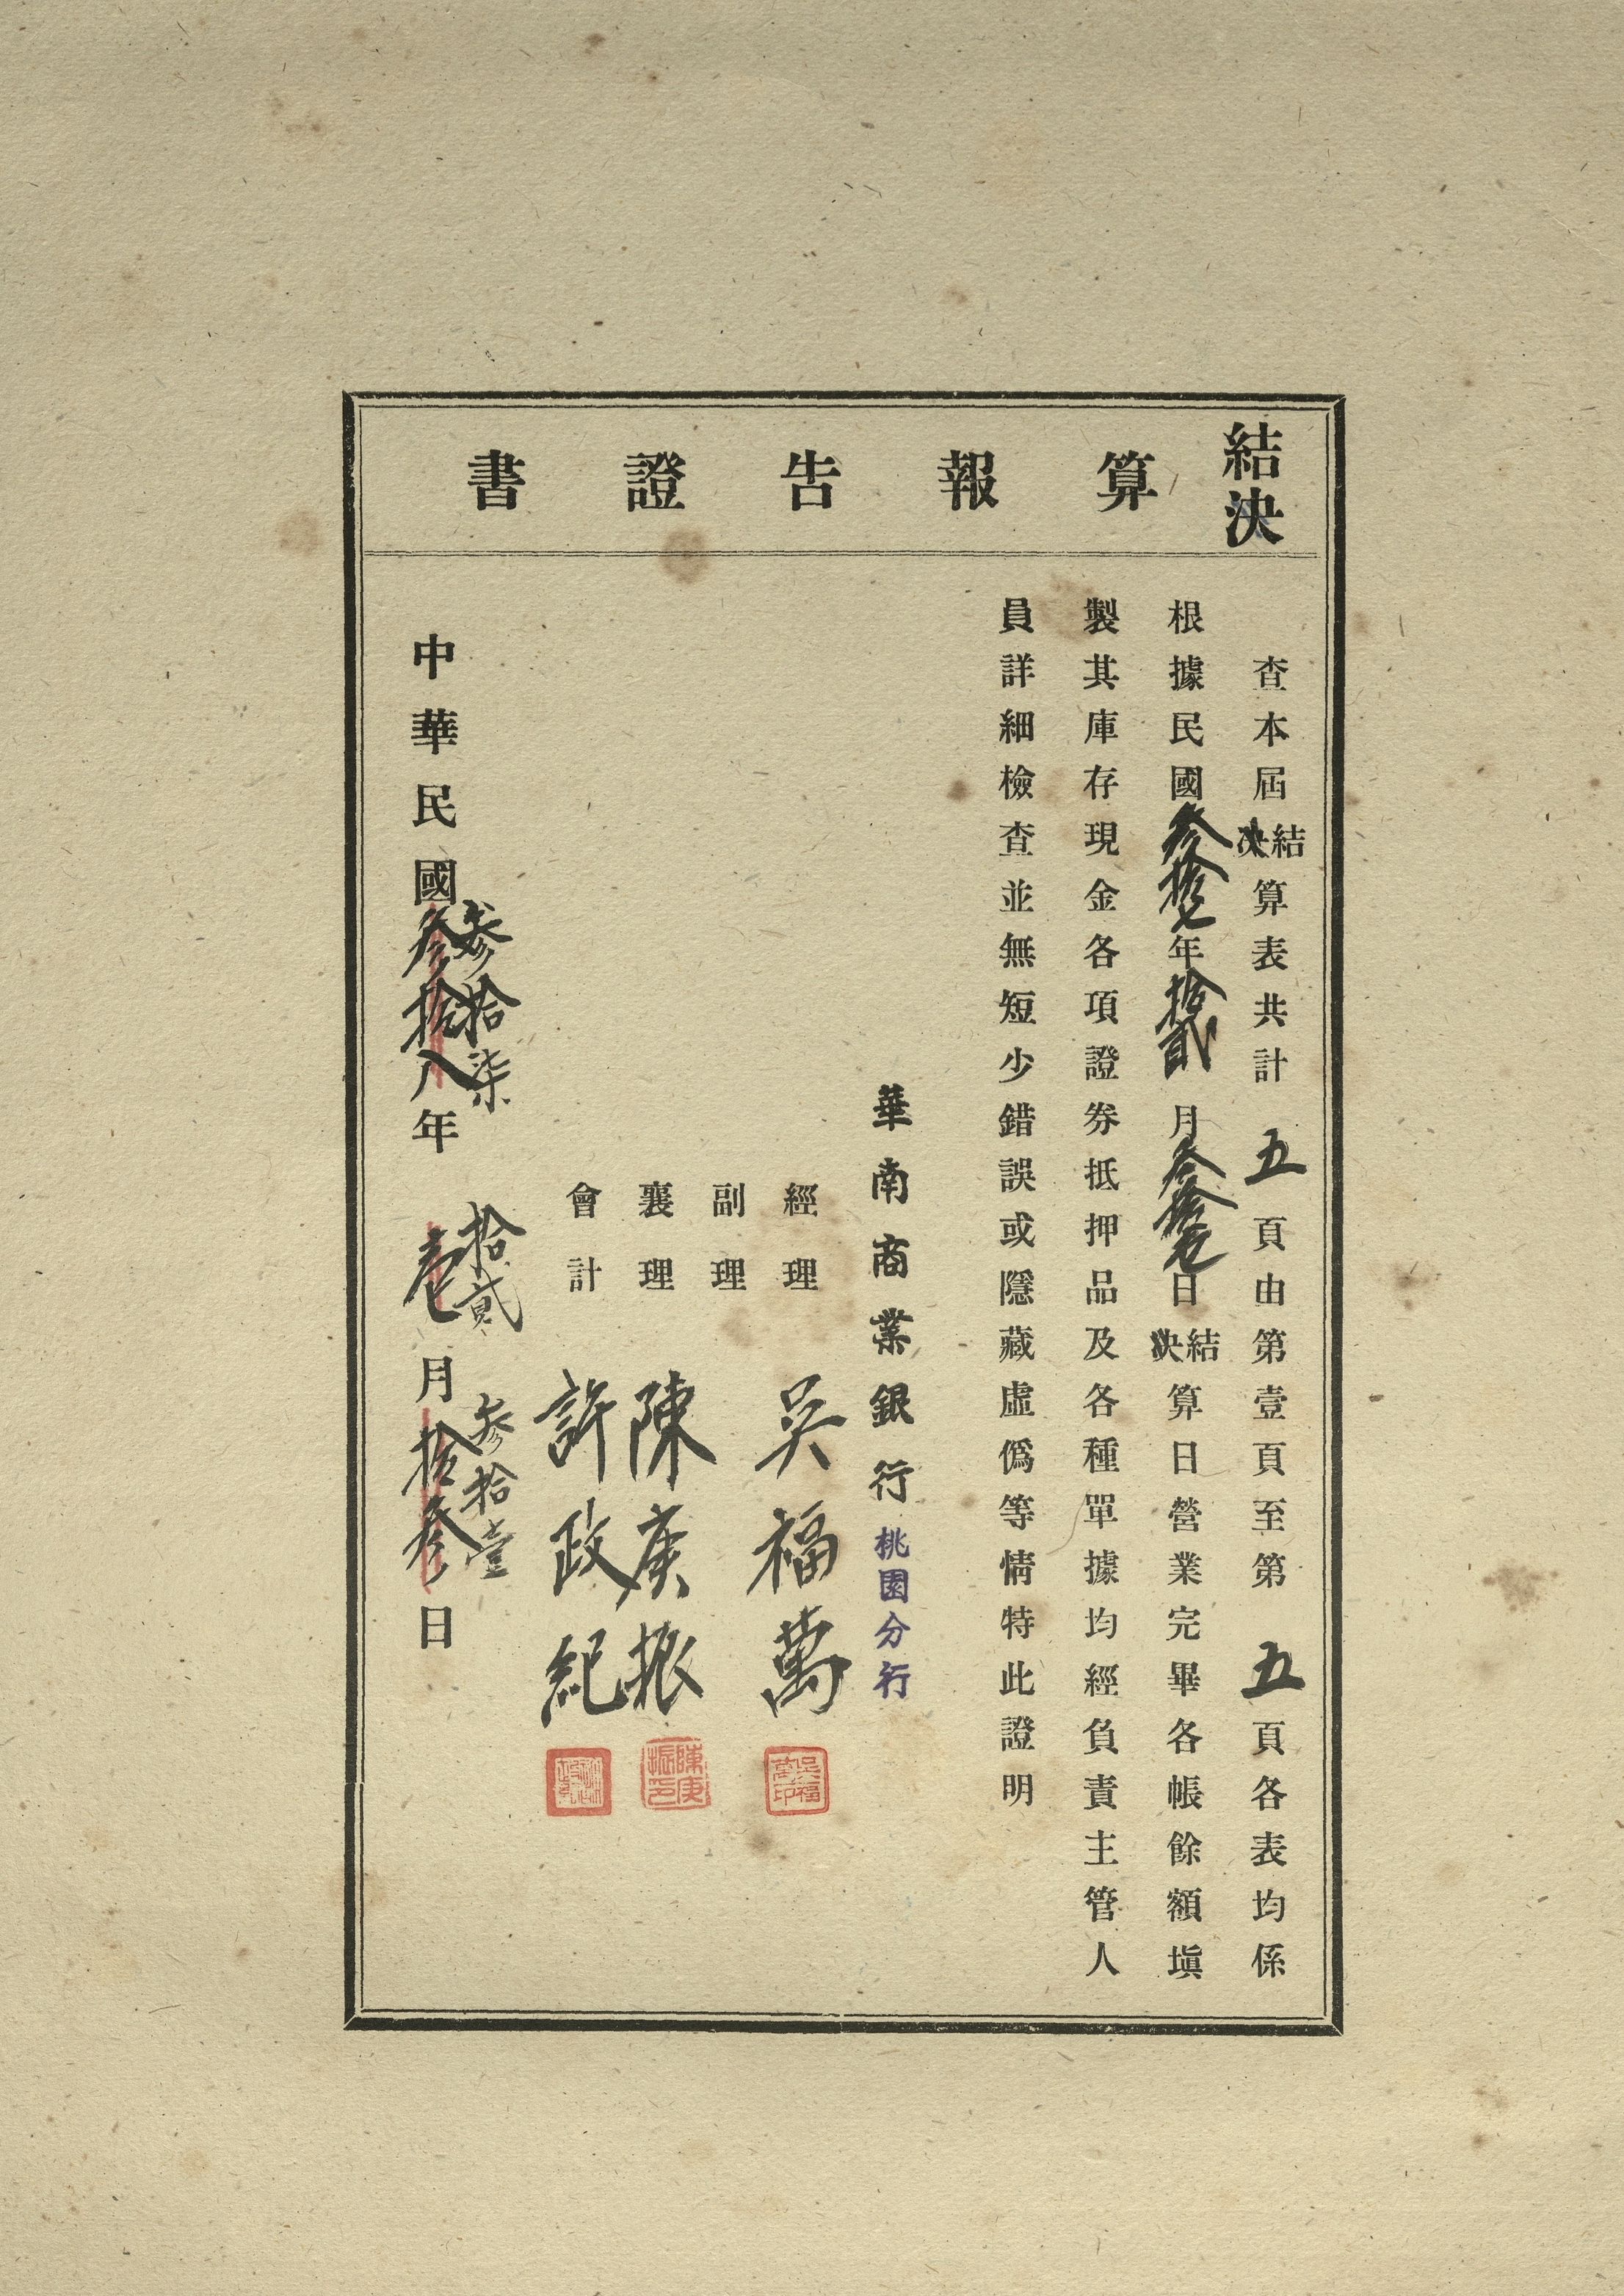 結決算報告證書
查本屆結決算表共計五頁由第壹頁至第五頁各表均係
根據民國叁拾七年拾貳月叁拾日結決算日營業完畢各帳餘額塡
製其庫存現金各項證券抵押品及各種單據均經負責主管人
員詳細檢查並無短少錯誤或隱藏虛僞等情特此證明
華南商業銀行桃園分行
經理 吳福萬 吳福萬印
副理
襄理 陳庚振 陳庚振印
會計 許政紀
叁拾柒 拾貳 叁拾壹
中華民國叁拾八年壱月拾叁日